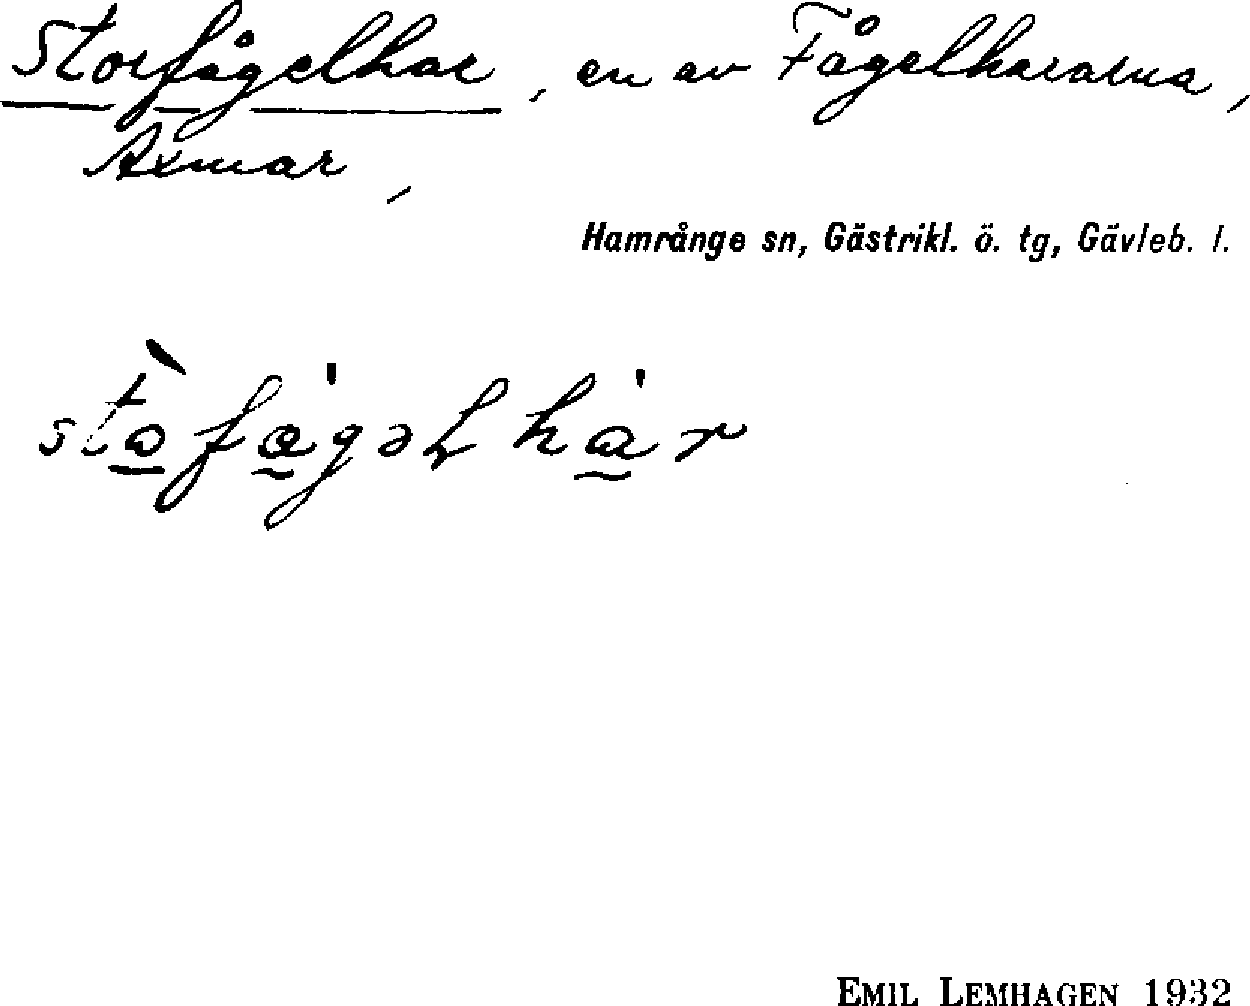 Storfågelhar, en av Fågelhararna,
Axmar,
Hamrånge sn, Gästrikl. ö. tg, Gävleb. l.
EMIL LEMHAGEN 1932